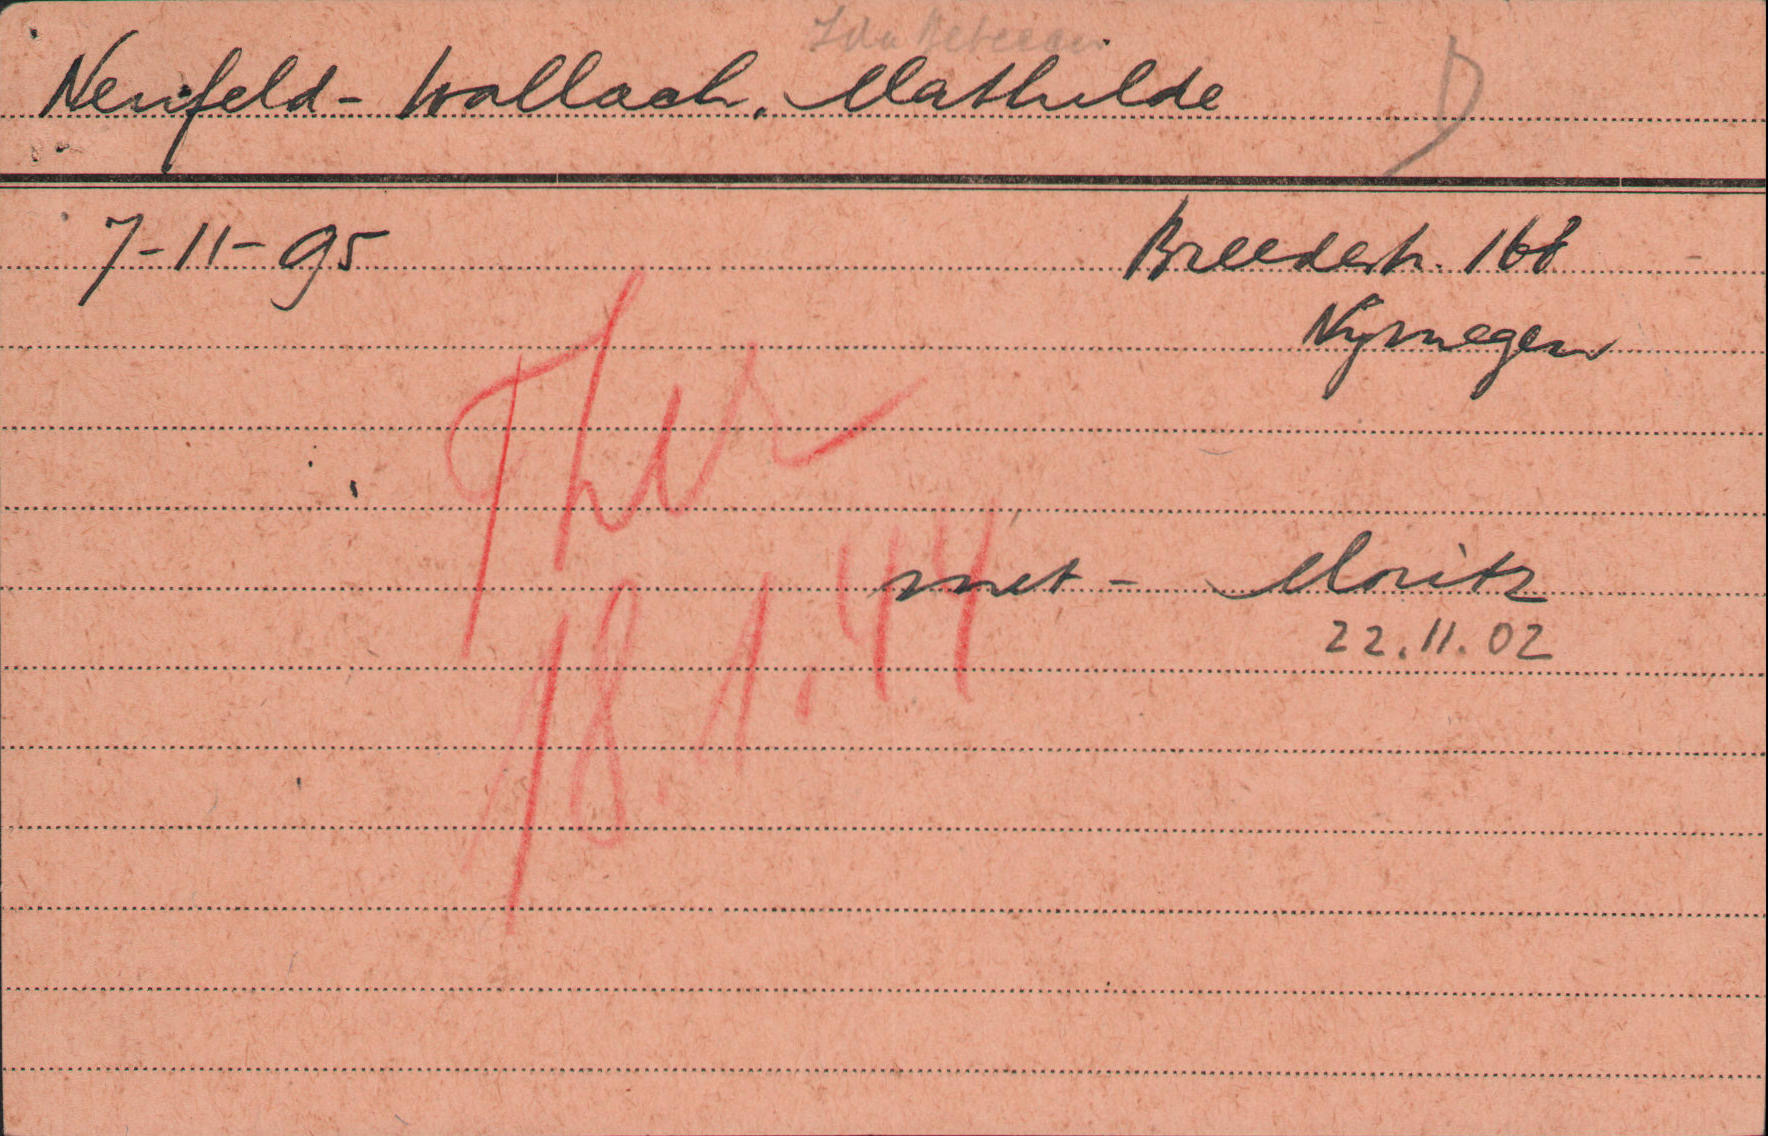 Neufeld - Wallach, Mathilde
D
7-11-95
Breedestr. 168
Nijmegen
Ther
18.1.44
met - Moritz
22.11.02